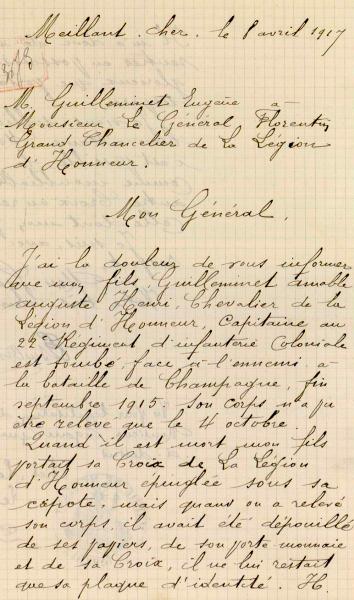 Meillant. Cher. le 8 avril 1917
M. Guilleminet Eugène à
Monsieur Le Général Florentin
Grand Chancelier de La Légion
d'Honneur.
Mon Général,
J'ai la douleur de vous informer
que mon fils Guilleminet Amable
Auguste Henri, Chevalier de la
Légion d'Honneur, Capitaine au
22 Régiment d'infanterie Coloniale
est tombé, face à l'ennemi à
la bataille de Champagne, fin
septembre 1915. Son corps n'a pu
être relevé que le 4 octobre.
Quand il est mort mon fils
portait sa Croix de La Légion
d'Honneur épinglée sous sa
capote, mais quand on a relevé
son corps, il avait été dépouillé
de ses papiers, de son porte monnaie
et de sa Croix, il ne lui restait
que sa plaque d'identité. H.